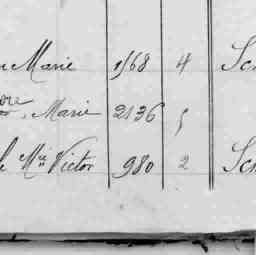 Marie 1568 4 Sc
Marie 2136 5
Mie Victor 980 2 Sc